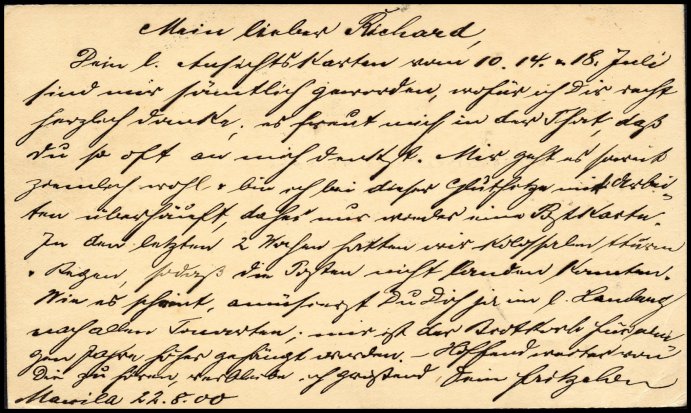 Mein lieber Richard,
Dein l. Ansichtskarten vom 10. 14. & 18. Juli
sind mir sämtlich geworden, wofür ich Dir recht
herzlich danke; es freut mich in der That, daß
Du so oft an mich denkst. Mir geht es soweit
ziemlich wohl & bin ich bei dieser Gluthitze mit Arbei-
ten überhäuft, daher nur wieder eine Postkarte.
In den letzten 2 Wochen hatten wir kolossalen Sturm
& Regen, sodaß die Posten nicht landen konnten.
Wie es scheint, amüsierst Du Dich ja im l.
nach allen Tonarten; mir ist der Brotkorb für
gen Jahre höher gehängt worden. – Hoffend weiter von
Dir zu hören, verbleibe ich grüßend Dein
Manila 22.8.00